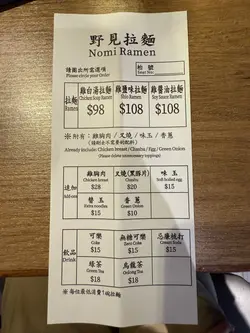 野見拉麵
Nomi Ramen
請圈出所需選項
Please circle your Order
枱號
Seat No:
拉麵
Ramen
雞白湯拉麵
Chicken Soup Ramen
$98
雞鹽味拉麵
Shio Ramen
$108
雞醬油拉麵
Soy Sauce Ramen
$108
※ 附有：雞胸肉 / 叉燒 / 味玉 / 香蔥
(請刪去不需要的配料)
Already include: Chicken breast / Chashu / Egg / Green Onions
(Please delete unnecessary toppings)
追加
Add-ons
雞胸肉
Chicken breast
$28
叉燒(黑豚片)
Chashu
$20
味玉
Soft boiled egg
$15
替玉
Extra noodles
$15
香蔥
Green Onion
$10
飲品
Drink
可樂
Coke
$15
無糖可樂
Zero Coke
$15
忌廉梳打
Cream Soda
$15
綠茶
Green Tea
$18
烏龍茶
Oolong Tea
$18
※ 每位最低消費1碗拉麵